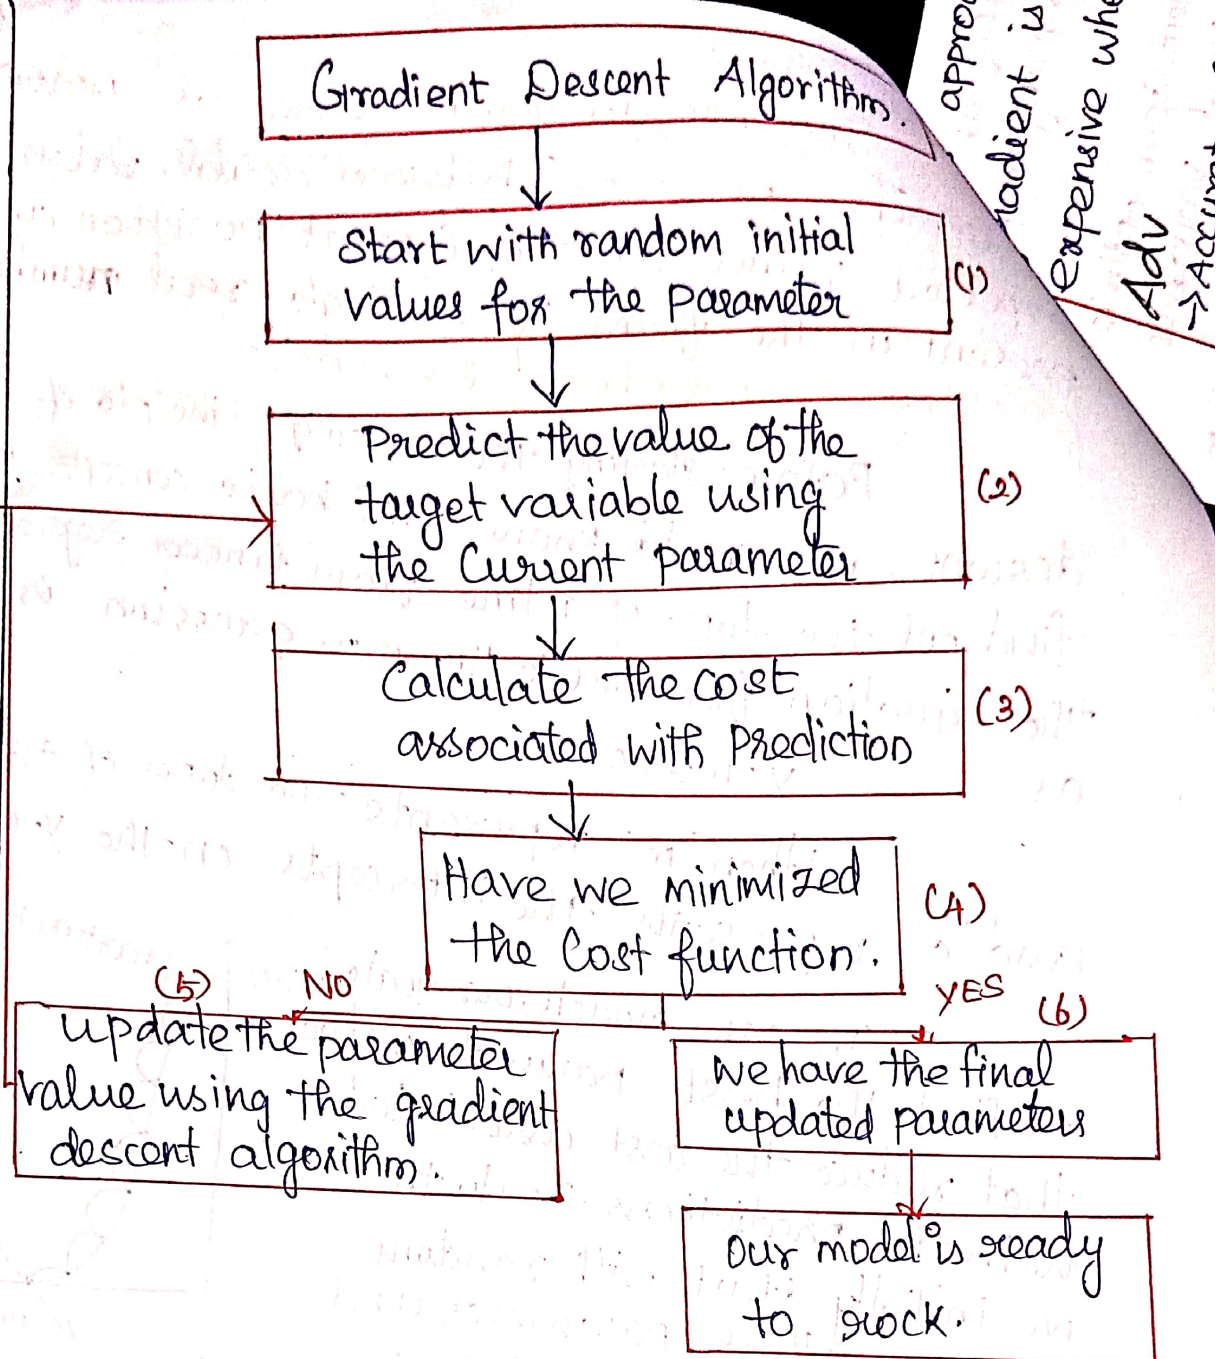 Gradient Descent Algorithm.
Start with random initial
values for the parameter
(1)
Predict the value of the
target variable using
the Current parameter
(2)
Calculate the cost
associated with Prediction
(3)
Have we minimized
the Cost function.
(4)
(5) NO
update the parameter
value using the gradient
descent algorithm.
YES (6)
we have the final
updated parameters
our model is ready
to rock.
adient is
expensive whe
Adv